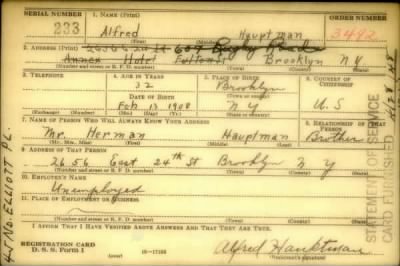 SERIAL NUMBER 1. NAME (Print) ORDER NUMBER
233 Alfred Hauptman 3492
(First) (Middle) (Last)
2. ADDRESS (Print) 2656 E 24 St 609 Rugby Road
Annex Hotel Fulton St Brooklyn N Y
(Number and street or R. F. D. number) (Town) (County) (State)
3. TELEPHONE 4. AGE IN YEARS 5. PLACE OF BIRTH 6. COUNTRY OF CITIZENSHIP
32 Brooklyn
DATE OF BIRTH (Town or county)
Feb 13 1908 N Y U.S
(Exchange) (Number) (Mo.) (Day) (Yr.) (State or country)
7. NAME OF PERSON WHO WILL ALWAYS KNOW YOUR ADDRESS 8. RELATIONSHIP OF THAT PERSON
Mr. Herman Hauptman Brother
(Mr., Mrs., Miss) (First) (Middle) (Last)
9. ADDRESS OF THAT PERSON
2656 East 24th St Brooklyn N Y
(Number and street or R. F. D. number) (Town) (County) (State)
10. EMPLOYER'S NAME
Unemployed
11. PLACE OF EMPLOYMENT OR BUSINESS
(Number and street or R. F. D. number) (Town) (County) (State)
I AFFIRM THAT I HAVE VERIFIED ABOVE ANSWERS AND THAT THEY ARE TRUE.
REGISTRATION CARD
D. S. S. Form 1 16-17105 Alfred Hauptman
(Registrant's signature)
ELLIOTT PL.
STATEMENT OF SERVICE
CARD FURNISHED